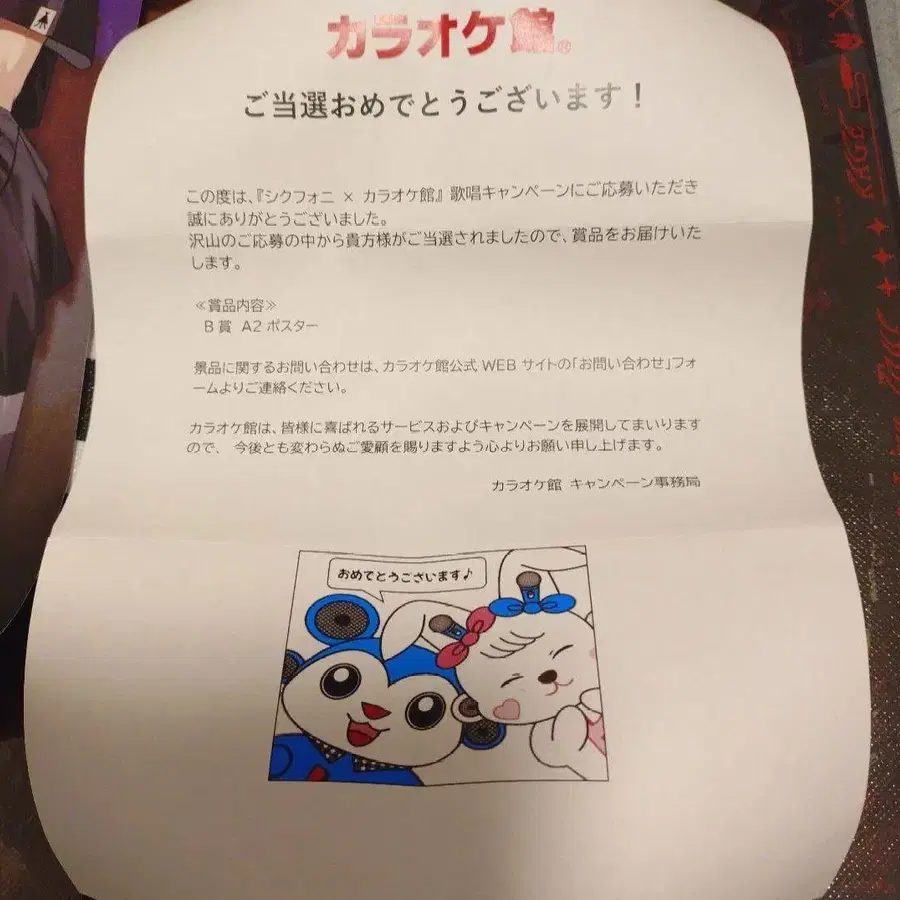 カラオケ館®
ご当選おめでとうございます！
この度は、『シクフォニ × カラオケ館』歌唱キャンペーンにご応募いただき
誠にありがとうございました。
沢山のご応募の中から貴方様がご当選されましたので、賞品をお届けいた
します。
≪賞品内容≫
B賞 A2ポスター
景品に関するお問い合わせは、カラオケ館公式WEBサイトの「お問い合わせ」フォ
ームよりご連絡ください。
カラオケ館は、皆様に喜ばれるサービスおよびキャンペーンを展開してまいります
ので、 今後とも変わらぬご愛顧を賜りますよう心よりお願い申し上げます。
カラオケ館 キャンペーン事務局
おめでとうございます♪